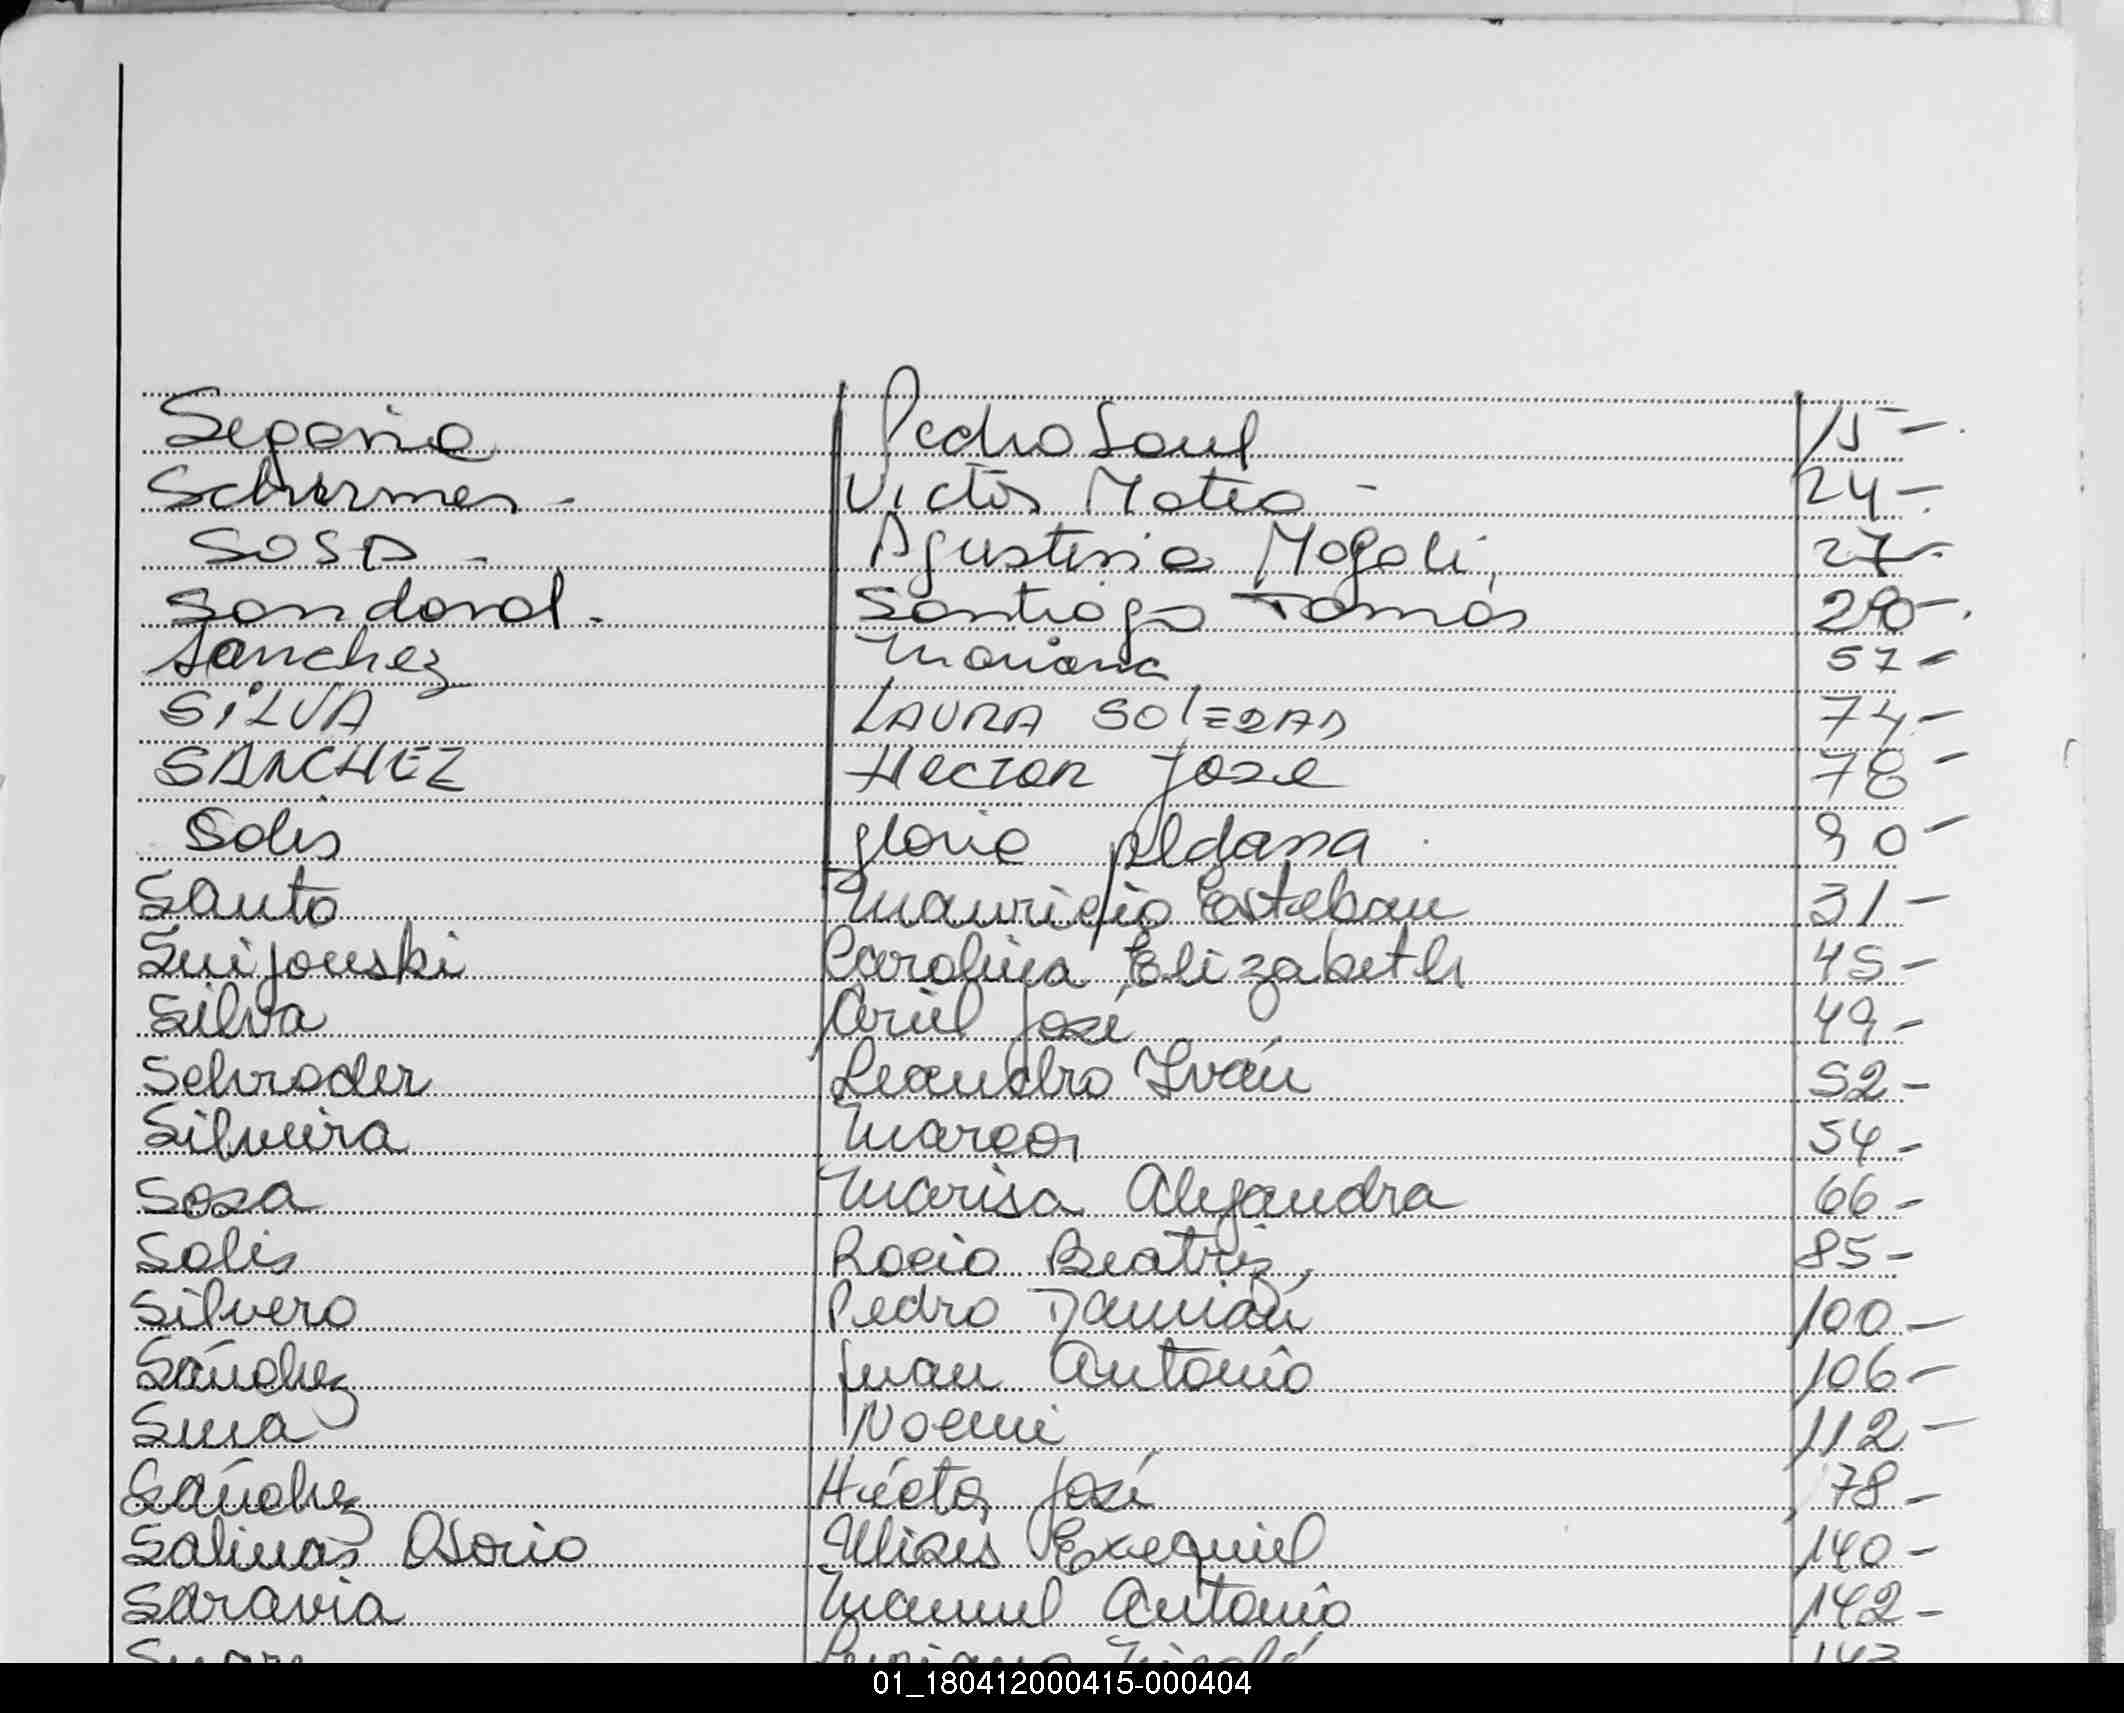 Segovia Pedro Saul 15-.
Schirmer - Victor Mateo - 24-.
SOSA - Agustina Magali, 27-.
Sandoval. Santiago Tomás 20-.
Sanchez Mariana 57-
SILVA LAURA SOLEDAD 74-
SANCHEZ Hector Jose 78-
Solis Gloria Aldana. 90-
Santo Mauricio Esteban 31-
Carolina Elizabeth 45-
Silva Ariel José 49-
Schroder Leandro Iván 52-
Silveira Marcos 54-
Sosa Marisa Alejandra 66-
Solis Rocio Beatriz, 85-
Silvero Pedro Damián 100-
Sánchez Juan Antonio 106-
Noemi 112-
Sánchez Héctor José 78-
Salinas Osorio Ulises Exequiel 140-
Saravia Manuel Antonio 142-
143
01_180412000415-000404